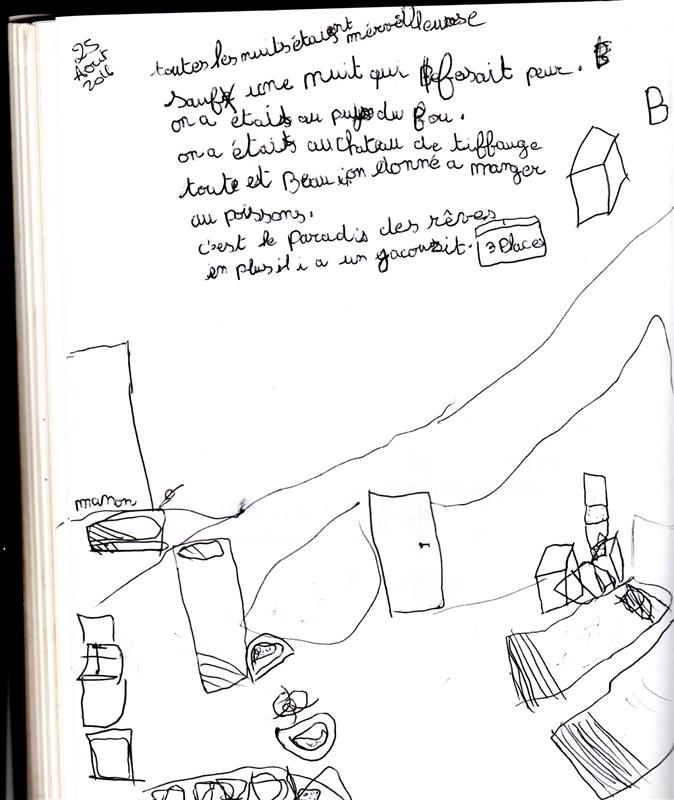 25
Aout
2016
toutes les nuits étaient mérveilleuse
sauf une nuit qui fosait peur. B
on a étais au puy du fou.
B
on a étaits au chateau de tiffauge
toute est Beau on donné a manger
au poissons.
c'est le Paradis des rêves
en plus il i a un jacouzit. 3 Places
manon